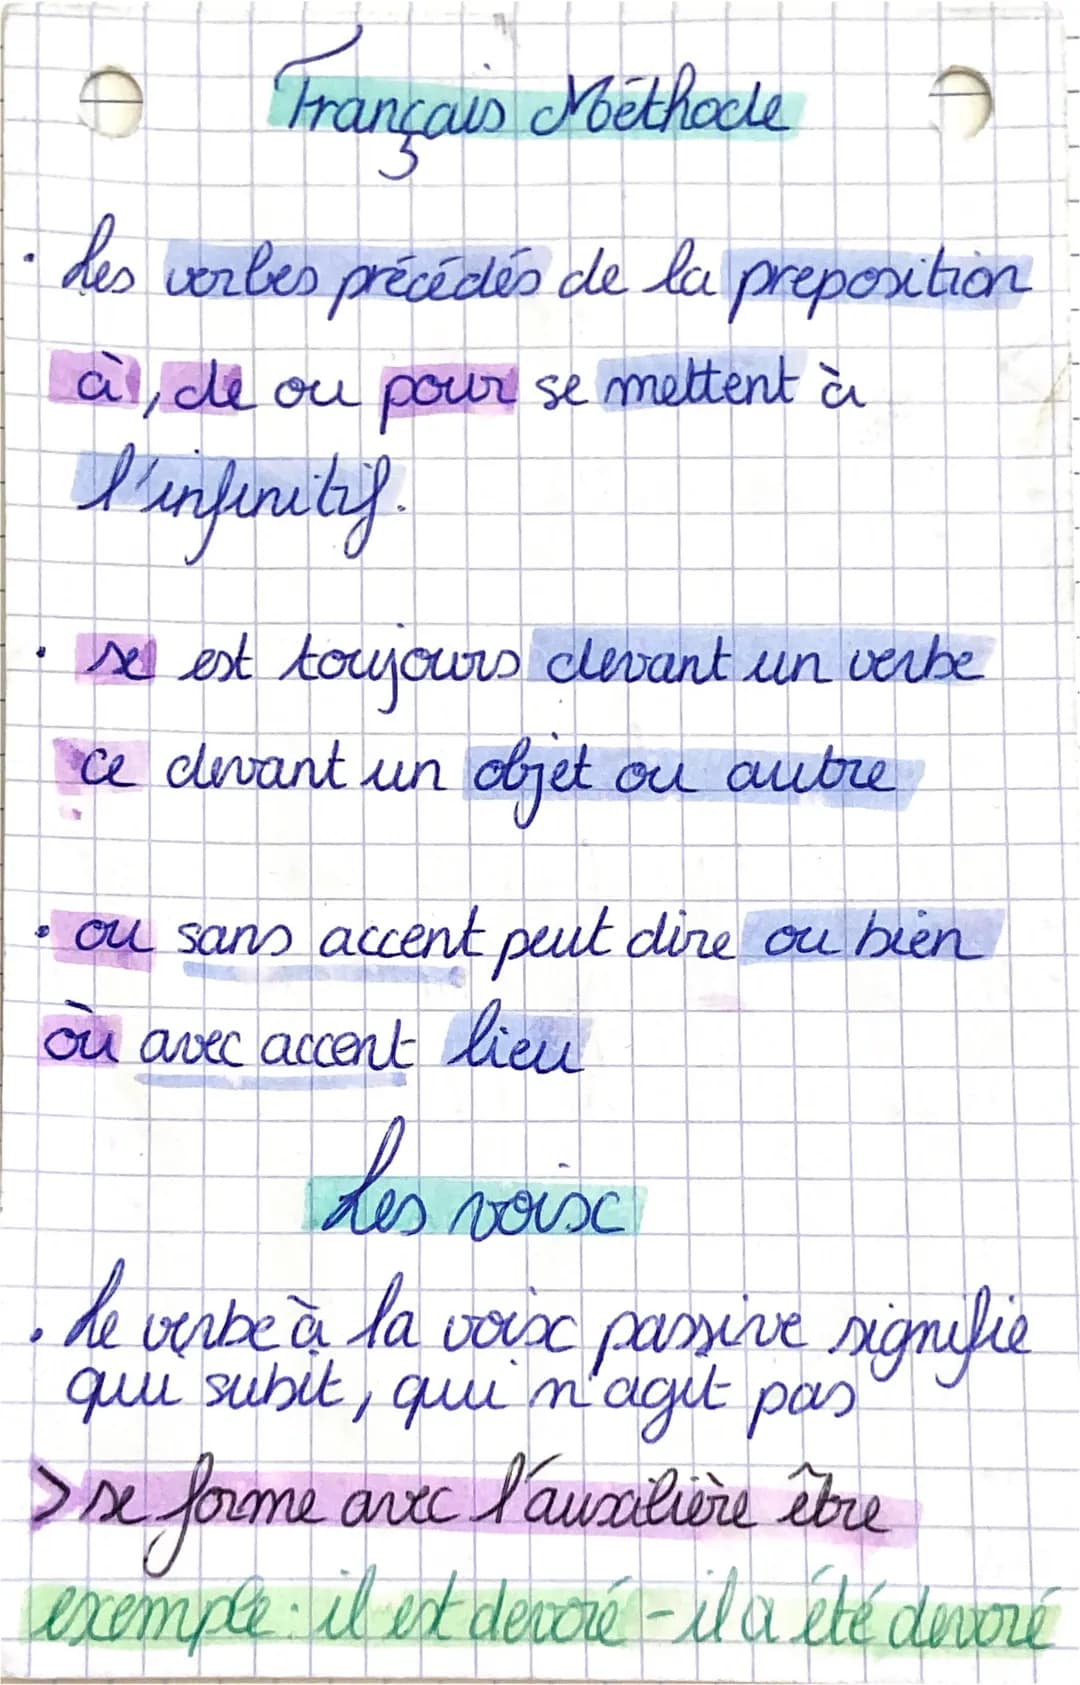 Français Méthode
• Les verbes précédés de la preposition
à, de ou pour se mettent à
l'infinitif.
• se est toujours devant un verbe
ce devant un objet ou autre
• ou sans accent peut dire ou bien
où avec accent lieu
Les voix
• Le verbe à la voix passive signifie
qui subit, qui n'agit pas
> se forme avec l'auxilière être
exemple: il est devoré - il a été devoré